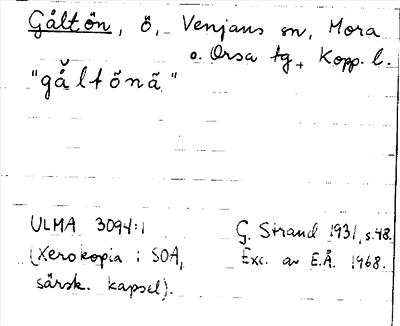 Gåltön, ö, Venjans sn, Mora
o. Orsa tg, Kopp. l.
"gå̆ltõnã"
ULMA 3094:1
(Xerokopia i SOA,
särsk. kapsel).
G. Strand 1931, s. 48.
Exc. av E.Å. 1968.